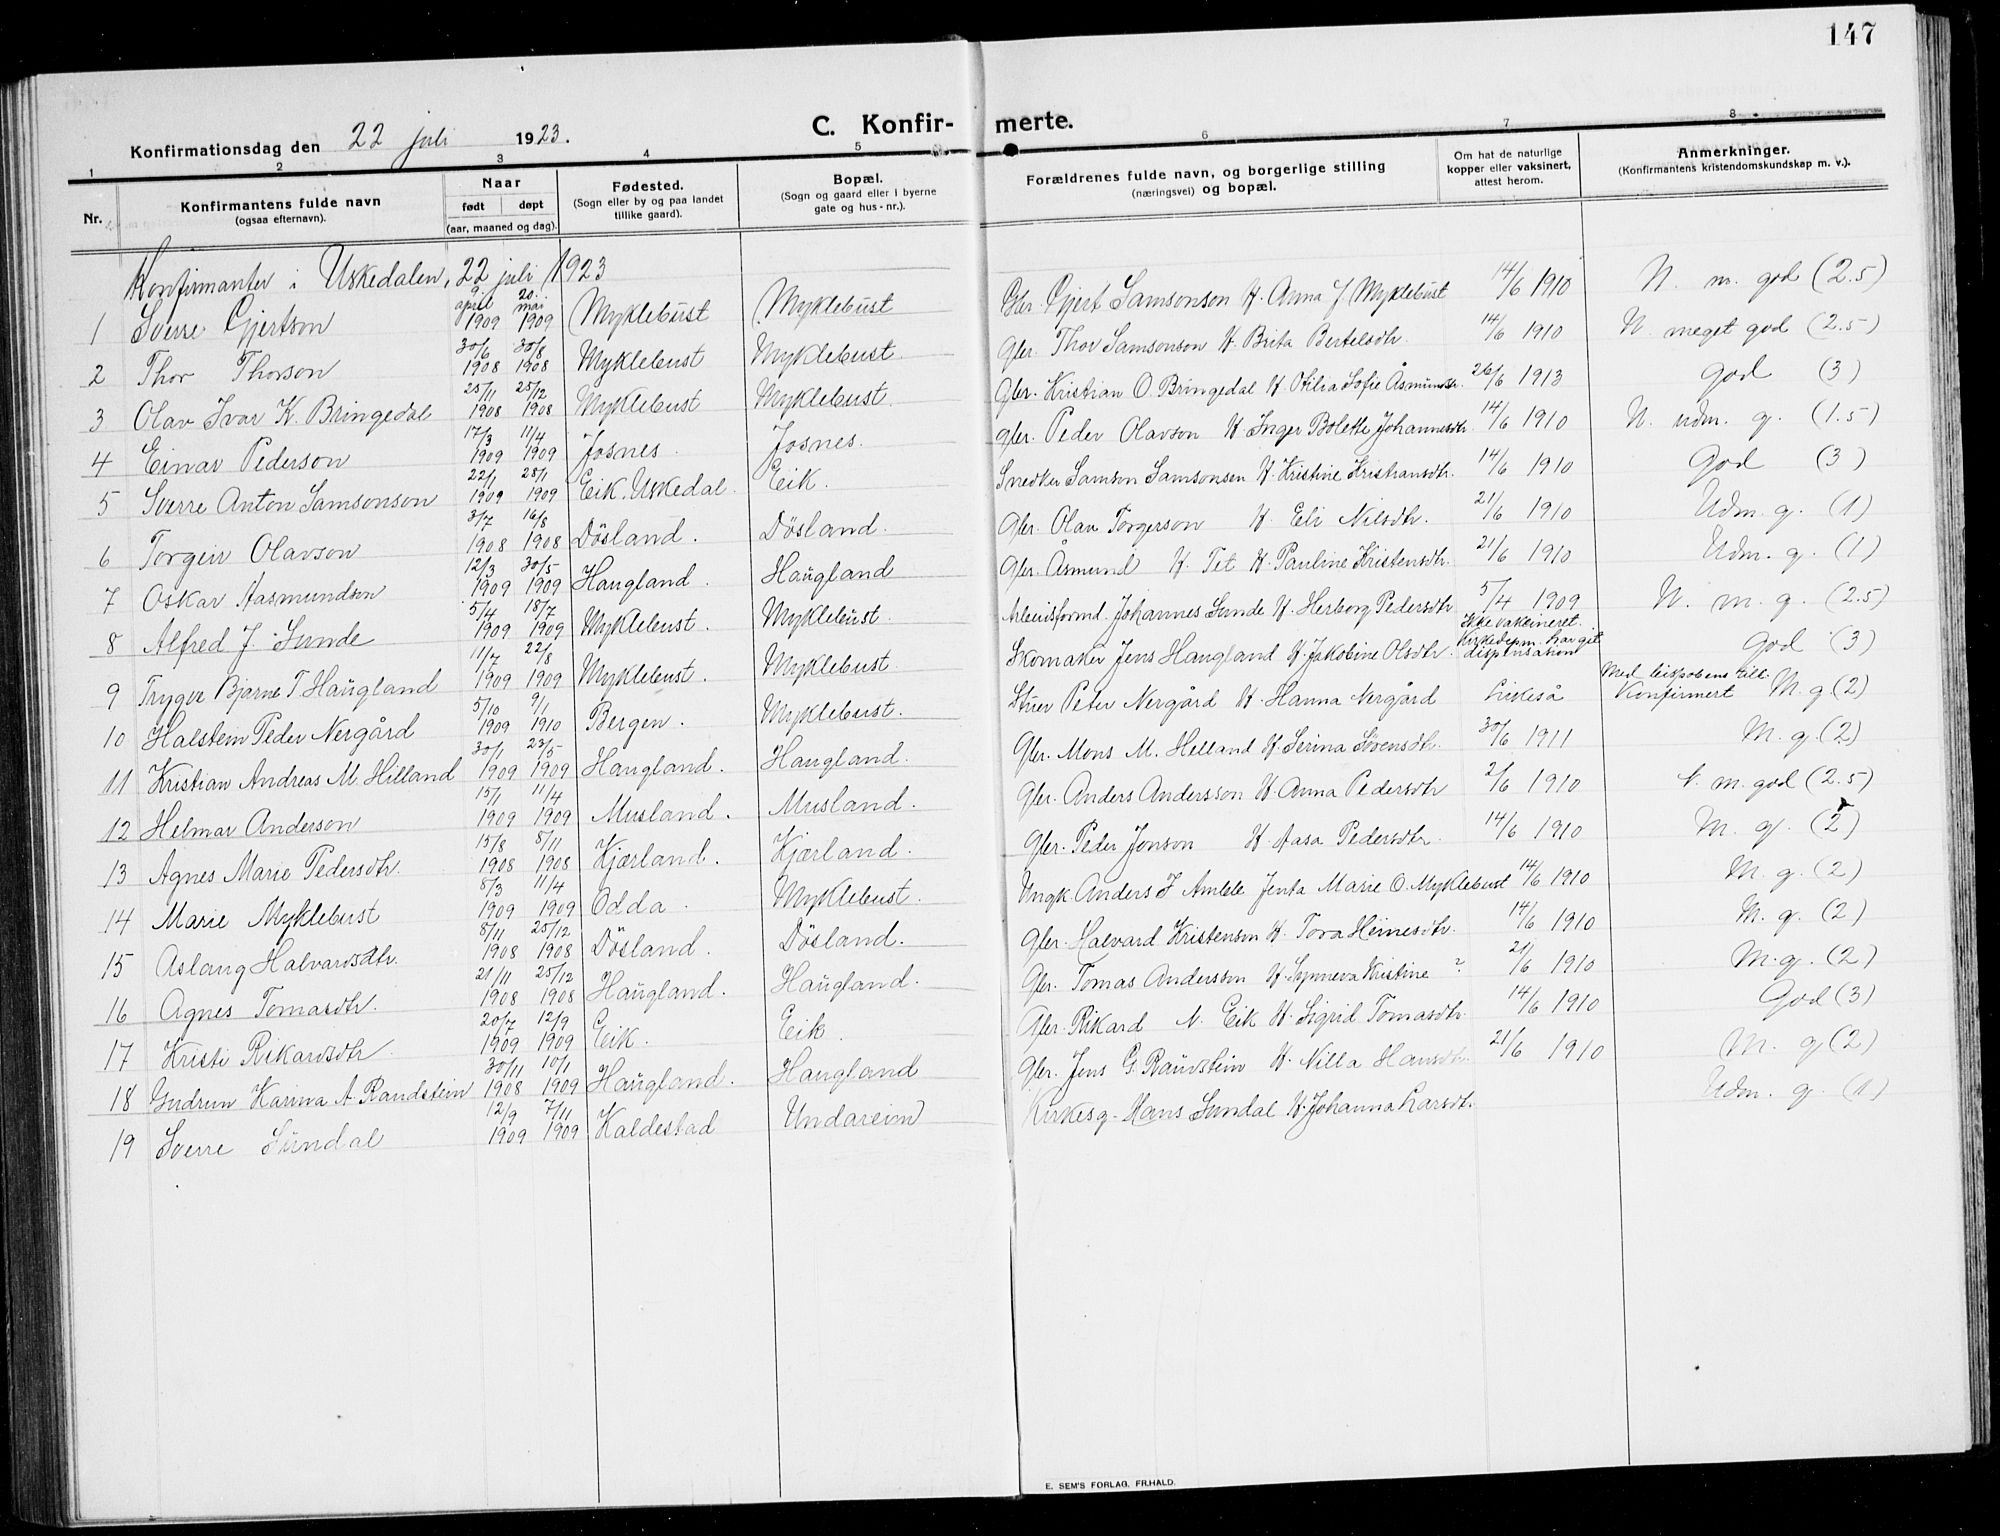 147
Konfirmationsdag den 22 juli 1923. C. Konfir- merte.
1 2 3 4 5 6 7 8
Nr. Konfirmantens fulde navn (ogsaa efternavn). Naar født døpt (aar, maaned og dag). Fødested. (Sogn eller by og paa landet tillike gaard). Bopæl. (Sogn og gaard eller i byerne gate og hus-nr.). Forældrenes fulde navn, og borgerlige stilling (næringsvei) og bopæl. Om hat de naturlige kopper eller vaksinert, attest herom. Anmerkninger. (Konfirmantens kristendomskundskap m. v.).
Konfirmanter i Uskedalen, 22 juli 1923
1 Sverre Gjertson 9 april 1909 20 mai 1909 Myklebust Myklebust Gbr. Gjert Samsonson H. Anna J Myklebust 14/6 1910 N. m. god (2.5)
2 Thor Thorson 30/6 1908 30/8 1908 Myklebust Myklebust. Gbr. Thor Samsonson H. Brita Bertelsdtr. 14/6 1910 N. meget god (2.5)
3 Olav Ivar K. Bringedal 25/11 1908 25/12 1908 Myklebust Myklebust. Gbr. Kristian O. Bringedal H. Otilia Sofie Åsmundsdtr. 26/6 1913 God (3)
4 Einar Pederson 17/3 1909 11/4 1909 Josnes. Josnes. Gbr. Peder Olavson H. Inger Bolette Johannesdtr. 14/6 1910 N. udm. g. (1.5)
5 Sverre Anton Samsonson 22/1 1909 28/1 1909 Eik. Uskedal. Eik. Snedker Samson Samsonsen H. Kristine Kristiansdtr. 14/6 1910 God (3)
6 Torgeir Olavson 3/7 1908 16/8 1908 Døsland. Døsland. Gbr. Olav Torgerson H. Eli Nilsdtr. 21/6 1910 Udm. g. (1)
7 Oskar Aasmundson 12/3 1909 30/5 1909 Haugland. Haugland Gbr. Åsmund H. Tet H. Pauline Kristensdtr. 21/6 1910 Udm. g. (1)
8 Alfred J. Sunde 5/4 1909 18/7 1909 Myklebust. Myklebust. Arbeidsformd. Johannes Sunde H. Herborg Pedersdtr 5/4 1909 N. m. g. (2.5)
9 Trygve Bjarne T Haugland 11/7 1909 22/8 1909 Myklebust. Myklebust. Skomaker Jens Haugland H. Jakobine Olsdtr. Ikke vaksineret. Kirkedepm. har git dispensation God (3)
10 Halstein Peder Nergård 5/10 1909 9/1 1910 Bergen. Myklebust. Stuer Peter Nergård H. Hanna Nergård Likeså Med bispobens till. Konfirmert M. g. (2)
11 Kristian Andreas M. Hilland 30/1 1909 23/5 1909 Haugland. Haugland. Gbr. Mons M. Helland H. Serina Sørensdtr. 30/6 1911 M. g. (2)
12 Helmar Anderson 15/1 1909 11/4 1909 Musland. Musland. Gbr. Anders Andersson H. Anna Pedersdtr 2/6 1910 N. m. god (2.5)
13 Agnes Marie Pedersdtr. 15/8 1908 8/11 1908 Kjærland. Kjærland. Gbr. Peder Jonson H. Aasa Pedersdtr. 14/6 1910 M. g. (2)
14 Marie Myklebust 8/3 1909 11/4 1909 Odda. Myklebust. Ungk Anders J Amble Jenta Marie O. Myklebust 14/6 1910 M. g. (2)
15 Aslaug Halvardsdtr. 8/11 1908 25/12 1908 Døsland. Døsland. Gbr. Halvard Kristenson H. Tora Heinesdtr. 14/6 1910 M. g. (2)
16 Agnes Tomasdtr. 21/11 1908 25/12 1908 Haugland. Haugland. Gbr. Tomas Andersson H. Synneva Kristine ? 21/6 1910 M. g. (2)
17 Kristi Rikardsdtr. 20/7 1909 12/9 1909 Eik. Eik. Gbr. Rikard N. Eik H. Sigrid Tomasdtr. 14/6 1910 God (3)
18 Gudrun Karina A. Randstein 30/11 1908 10/1 1909 Haugland. Haugland Gbr. Jens G. Raunstein H. Nilla Hansdtr. 21/6 1910 M. g (2)
19 Sverre Sundal 12/9 1909 7/11 1909 Kaldestad Undareim Kirkesg. Hans Sundal H. Johanna Larsdtr. Udm. g. (1)
E. SEM'S FORLAG. FR.HALD.